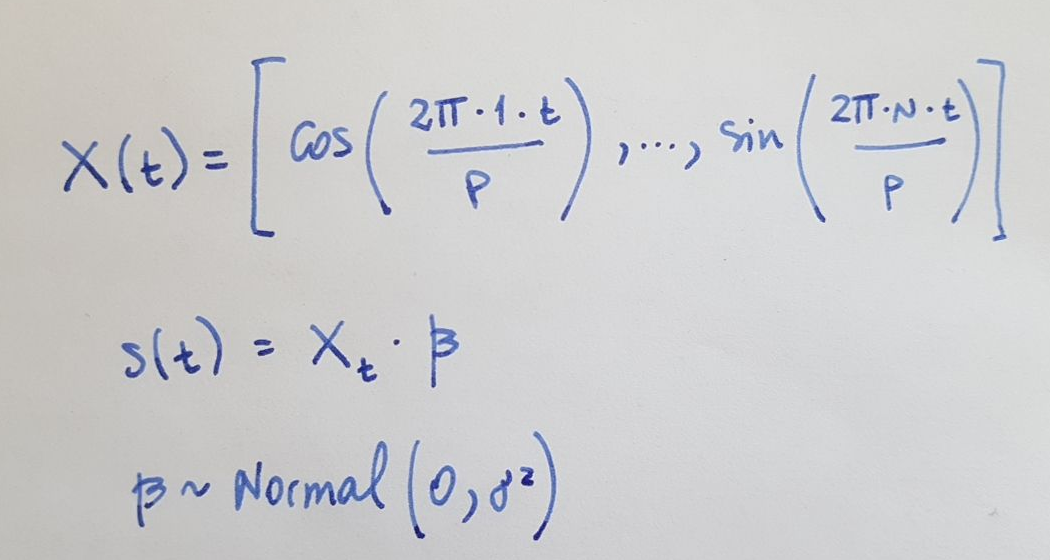 X(t) = [ cos( 2π·1·t / P ) , ..., sin( 2π·N·t / P ) ]
s(t) = Xₜ · β
β ~ Normal(0, σ²)